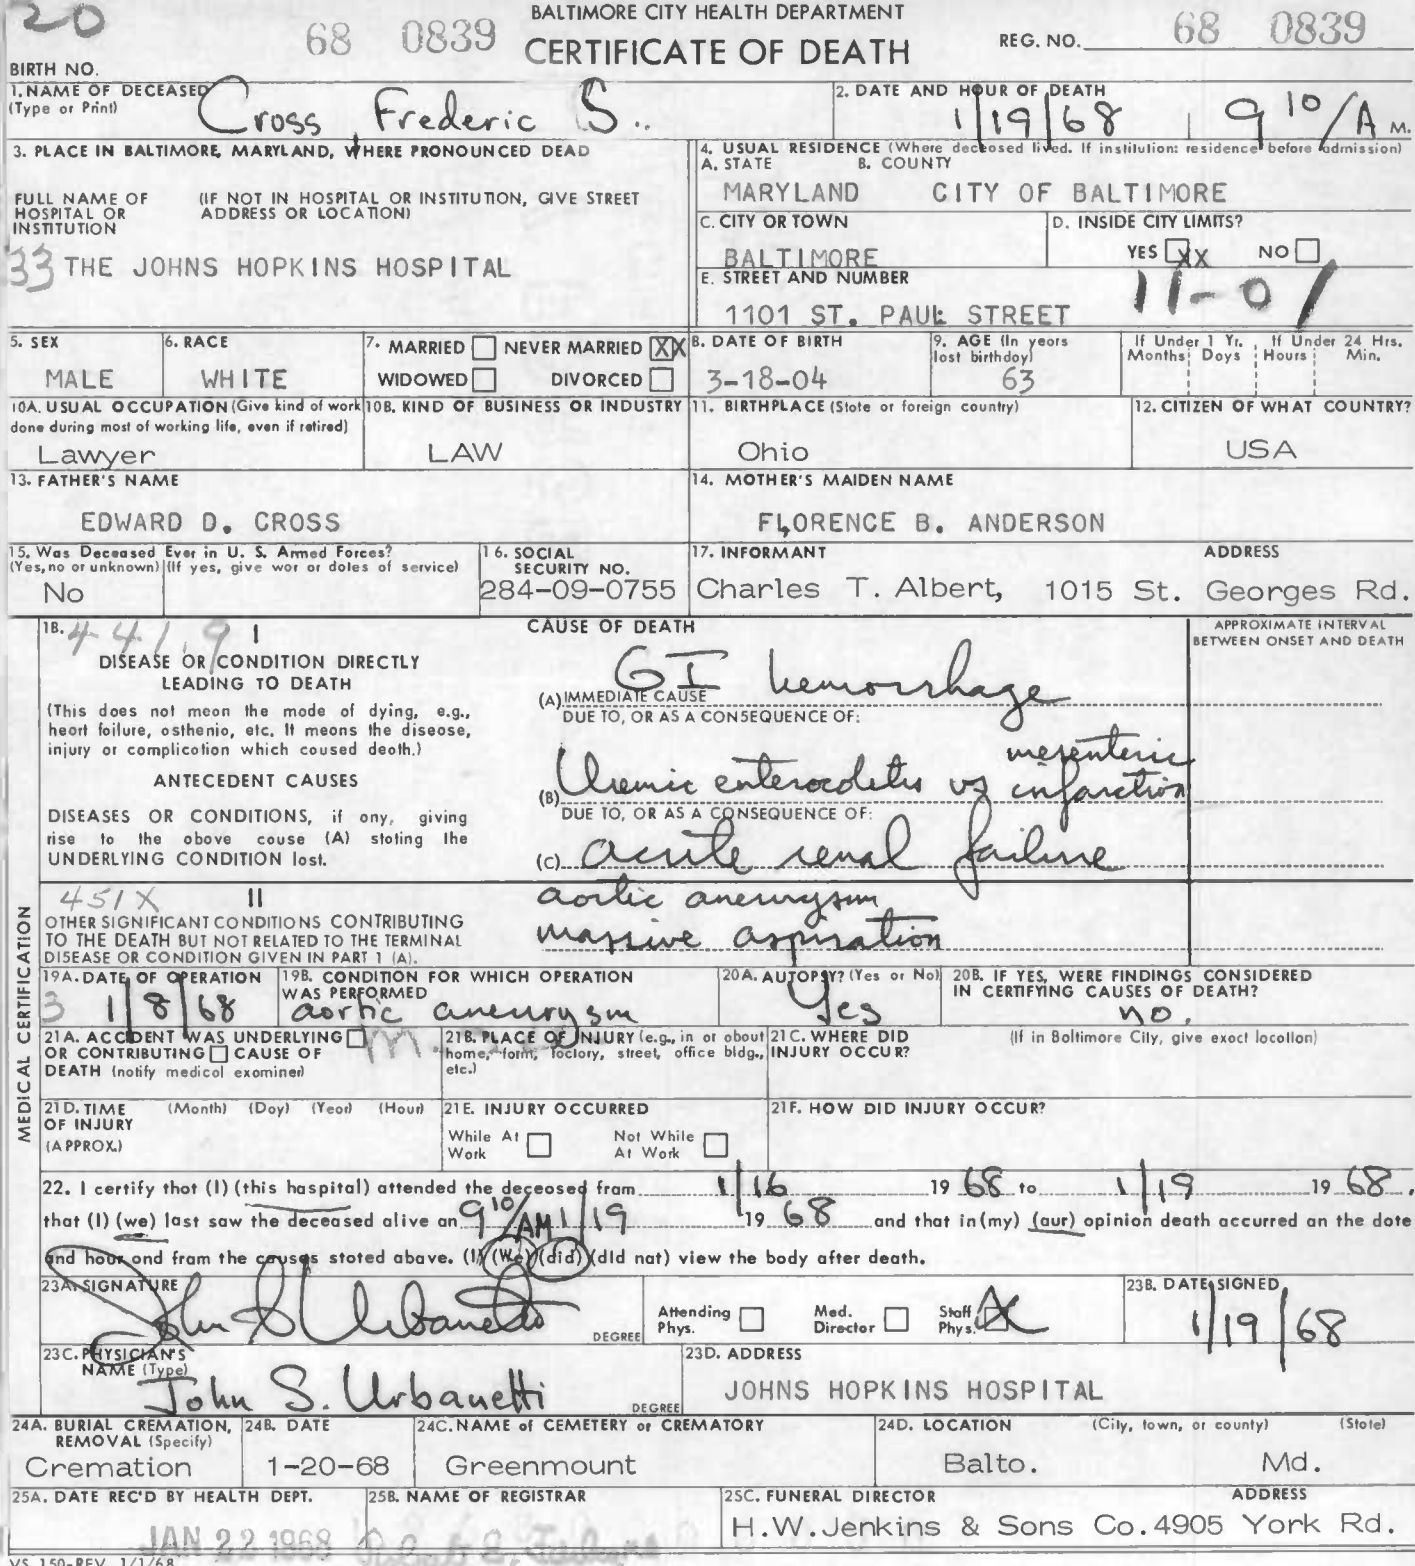 20
BALTIMORE CITY HEALTH DEPARTMENT
68 0839 CERTIFICATE OF DEATH REG. NO. 68 0839
BIRTH NO.
1. NAME OF DECEASED (Type or Print) Cross, Frederic S.
2. DATE AND HOUR OF DEATH 1/19/68 9 10/A M.
3. PLACE IN BALTIMORE, MARYLAND, WHERE PRONOUNCED DEAD
FULL NAME OF HOSPITAL OR INSTITUTION (IF NOT IN HOSPITAL OR INSTITUTION, GIVE STREET ADDRESS OR LOCATION)
33 THE JOHNS HOPKINS HOSPITAL
4. USUAL RESIDENCE (Where deceased lived. If institution: residence before admission)
A. STATE B. COUNTY
MARYLAND CITY OF BALTIMORE
C. CITY OR TOWN D. INSIDE CITY LIMITS?
BALTIMORE YES XX NO
E. STREET AND NUMBER 11-01
1101 ST. PAUL STREET
5. SEX MALE
6. RACE WHITE
7. MARRIED NEVER MARRIED XX
WIDOWED DIVORCED
8. DATE OF BIRTH 3-18-04
9. AGE (In years last birthday) 63
If Under 1 Yr. Months Days If Under 24 Hrs. Hours Min.
10A. USUAL OCCUPATION (Give kind of work done during most of working life, even if retired) Lawyer
10B. KIND OF BUSINESS OR INDUSTRY LAW
11. BIRTHPLACE (State or foreign country) Ohio
12. CITIZEN OF WHAT COUNTRY? USA
13. FATHER'S NAME EDWARD D. CROSS
14. MOTHER'S MAIDEN NAME FLORENCE B. ANDERSON
15. Was Deceased Ever in U. S. Armed Forces? (Yes, no or unknown) (If yes, give war or dates of service) No
16. SOCIAL SECURITY NO. 284-09-0755
17. INFORMANT ADDRESS
Charles T. Albert, 1015 St. Georges Rd.
MEDICAL CERTIFICATION
18. 441.9 I
DISEASE OR CONDITION DIRECTLY LEADING TO DEATH
(This does not mean the mode of dying, e.g., heart failure, asthenia, etc. It means the disease, injury or complication which caused death.)
ANTECEDENT CAUSES
DISEASES OR CONDITIONS, if any, giving rise to the above cause (A) stating the UNDERLYING CONDITION last.
CAUSE OF DEATH
APPROXIMATE INTERVAL BETWEEN ONSET AND DEATH
GI hemorrhage
(A) IMMEDIATE CAUSE
DUE TO, OR AS A CONSEQUENCE OF:
(B) Uremic enterocolitis vs mesenteric infarction
DUE TO, OR AS A CONSEQUENCE OF:
(C) acute renal failure
451X II
OTHER SIGNIFICANT CONDITIONS CONTRIBUTING TO THE DEATH BUT NOT RELATED TO THE TERMINAL DISEASE OR CONDITION GIVEN IN PART 1 (A).
aortic aneurysm
massive aspiration
19A. DATE OF OPERATION 3 1/8/68
19B. CONDITION FOR WHICH OPERATION WAS PERFORMED aortic aneurysm
20A. AUTOPSY? (Yes or No) Yes
20B. IF YES, WERE FINDINGS CONSIDERED IN CERTIFYING CAUSES OF DEATH? no.
21A. ACCIDENT WAS UNDERLYING OR CONTRIBUTING CAUSE OF DEATH (notify medical examiner)
21B. PLACE OF INJURY (e.g., in or about home, farm, factory, street, office bldg., etc.)
21C. WHERE DID INJURY OCCUR? (If in Baltimore City, give exact location)
21D. TIME OF INJURY (APPROX.) (Month) (Day) (Year) (Hour)
21E. INJURY OCCURRED
While At Work Not While At Work
21F. HOW DID INJURY OCCUR?
22. I certify that (I) (this hospital) attended the deceased from 1/16 19 68 to 1/19 19 68,
that (I) (we) last saw the deceased alive on 9 10/AM 1/19 19 68 and that in (my) (our) opinion death occurred on the date
and hour and from the causes stated above. (I) (We) (did) (did not) view the body after death.
23A. SIGNATURE John S Urbanetti DEGREE
Attending Phys. Med. Director Staff Phys. X
23B. DATE SIGNED 1/19/68
23C. PHYSICIAN'S NAME (Type) John S. Urbanetti DEGREE
23D. ADDRESS JOHNS HOPKINS HOSPITAL
24A. BURIAL CREMATION, REMOVAL (Specify) Cremation
24B. DATE 1-20-68
24C. NAME of CEMETERY or CREMATORY Greenmount
24D. LOCATION (City, town, or county) (State) Balto. Md.
25A. DATE REC'D BY HEALTH DEPT. JAN 22 1968
25B. NAME OF REGISTRAR
25C. FUNERAL DIRECTOR ADDRESS
H.W.Jenkins & Sons Co. 4905 York Rd.
VS 150-REV. 1/1/68